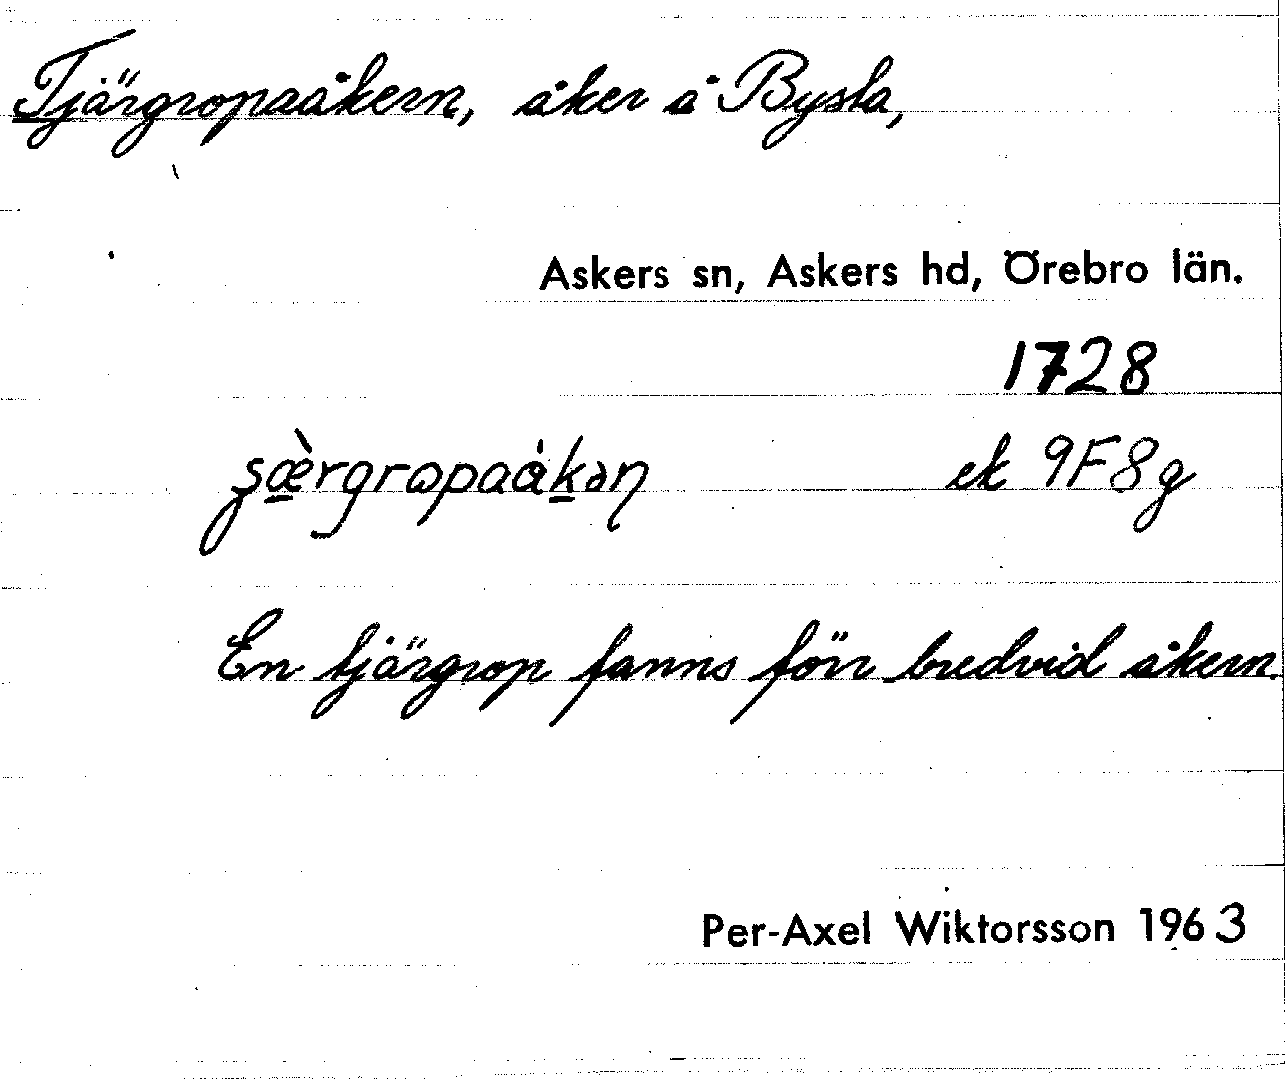 Tjärgropaåkern, åker å Bysta,
Askers sn, Askers hd, Örebro län.
1728
ek 9F8g
En tjärgrop fanns förr bredvid åkern.
Per-Axel Wiktorsson 1963